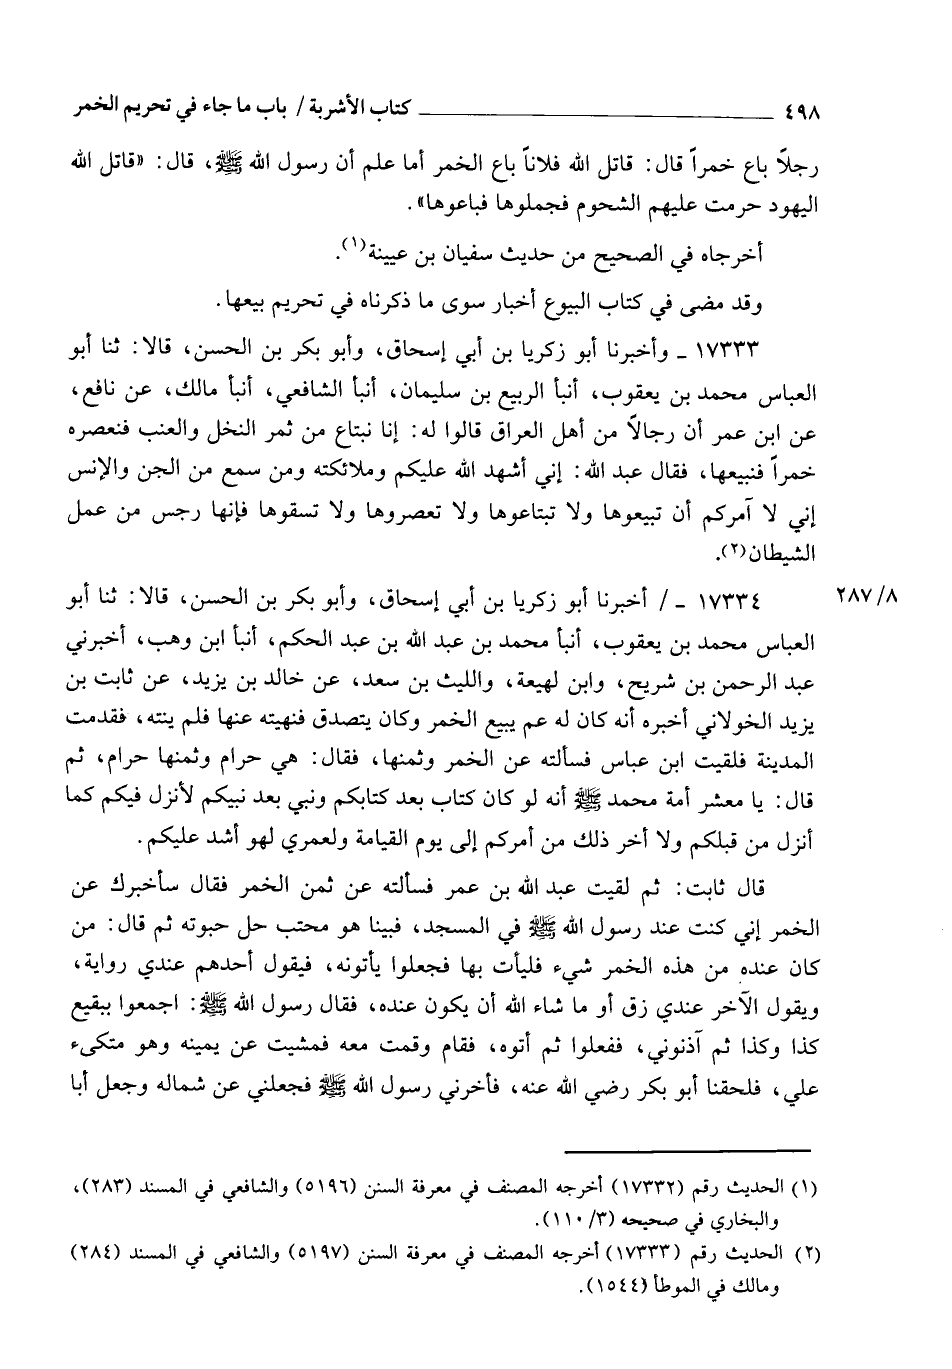 ٤٩٨ ــــــــــــــــــــ كتاب الأشربة / باب ما جاء في تحريم الخمر
رجلاً باع خمراً قال: قاتل الله فلاناً باع الخمر أما علم أن رسول الله ﷺ، قال: «قاتل الله
اليهود حرمت عليهم الشحوم فجملوها فباعوها».
أخرجاه في الصحيح من حديث سفيان بن عيينة(١).
وقد مضى في كتاب البيوع أخبار سوى ما ذكرناه في تحريم بيعها.
١٧٣٣٣ ـ وأخبرنا أبو زكريا بن أبي إسحاق، وأبو بكر بن الحسن، قالا: ثنا أبو
العباس محمد بن يعقوب، أنبأ الربيع بن سليمان، أنبأ الشافعي، أنبأ مالك، عن نافع،
عن ابن عمر أن رجالاً من أهل العراق قالوا له: إنا نبتاع من ثمر النخل والعنب فنعصره
خمراً فنبيعها، فقال عبد الله: إني أشهد الله عليكم وملائكته ومن سمع من الجن والإنس
إني لا آمركم أن تبيعوها ولا تبتاعوها ولا تعصروها ولا تسقوها فإنها رجس من عمل
الشيطان(٢).
١٧٣٣٤ ـ / أخبرنا أبو زكريا بن أبي إسحاق، وأبو بكر بن الحسن، قالا: ثنا أبو
٢٨٧/٨
العباس محمد بن يعقوب، أنبأ محمد بن عبد الله بن عبد الحكم، أنبأ ابن وهب، أخبرني
عبد الرحمن بن شريح، وابن لهيعة، والليث بن سعد، عن خالد بن يزيد، عن ثابت بن
يزيد الخولاني أخبره أنه كان له عم يبيع الخمر وكان يتصدق فنهيته عنها فلم ينته، فقدمت
المدينة فلقيت ابن عباس فسألته عن الخمر وثمنها، فقال: هي حرام وثمنها حرام، ثم
قال: يا معشر أمة محمد ﷺ أنه لو كان كتاب بعد كتابكم ونبي بعد نبيكم لأنزل فيكم كما
أنزل من قبلكم ولا أخر ذلك من أمركم إلى يوم القيامة ولعمري لهو أشد عليكم.
قال ثابت: ثم لقيت عبد الله بن عمر فسألته عن ثمن الخمر فقال سأخبرك عن
الخمر إني كنت عند رسول الله ﷺ في المسجد، فبينا هو محتب حل حبوته ثم قال: من
كان عنده من هذه الخمر شيء فليأت بها فجعلوا يأتونه، فيقول أحدهم عندي رواية،
ويقول الآخر عندي زق أو ما شاء الله أن يكون عنده، فقال رسول الله ﷺ: اجمعوا ببقيع
كذا وكذا ثم آذنوني، ففعلوا ثم أتوه، فقام وقمت معه فمشيت عن يمينه وهو متكىء
علي، فلحقنا أبو بكر رضي الله عنه، فأخرني رسول الله ﷺ فجعلني عن شماله وجعل أبا
(١) الحديث رقم (١٧٣٣٢) أخرجه المصنف في معرفة السنن (٥١٩٦) والشافعي في المسند (٢٨٣)،
والبخاري في صحيحه (٣/ ١١٠).
(٢) الحديث رقم (١٧٣٣٣) أخرجه المصنف في معرفة السنن (٥١٩٧) والشافعي في المسند (٢٨٤)
ومالك في الموطأ (١٥٤٤).